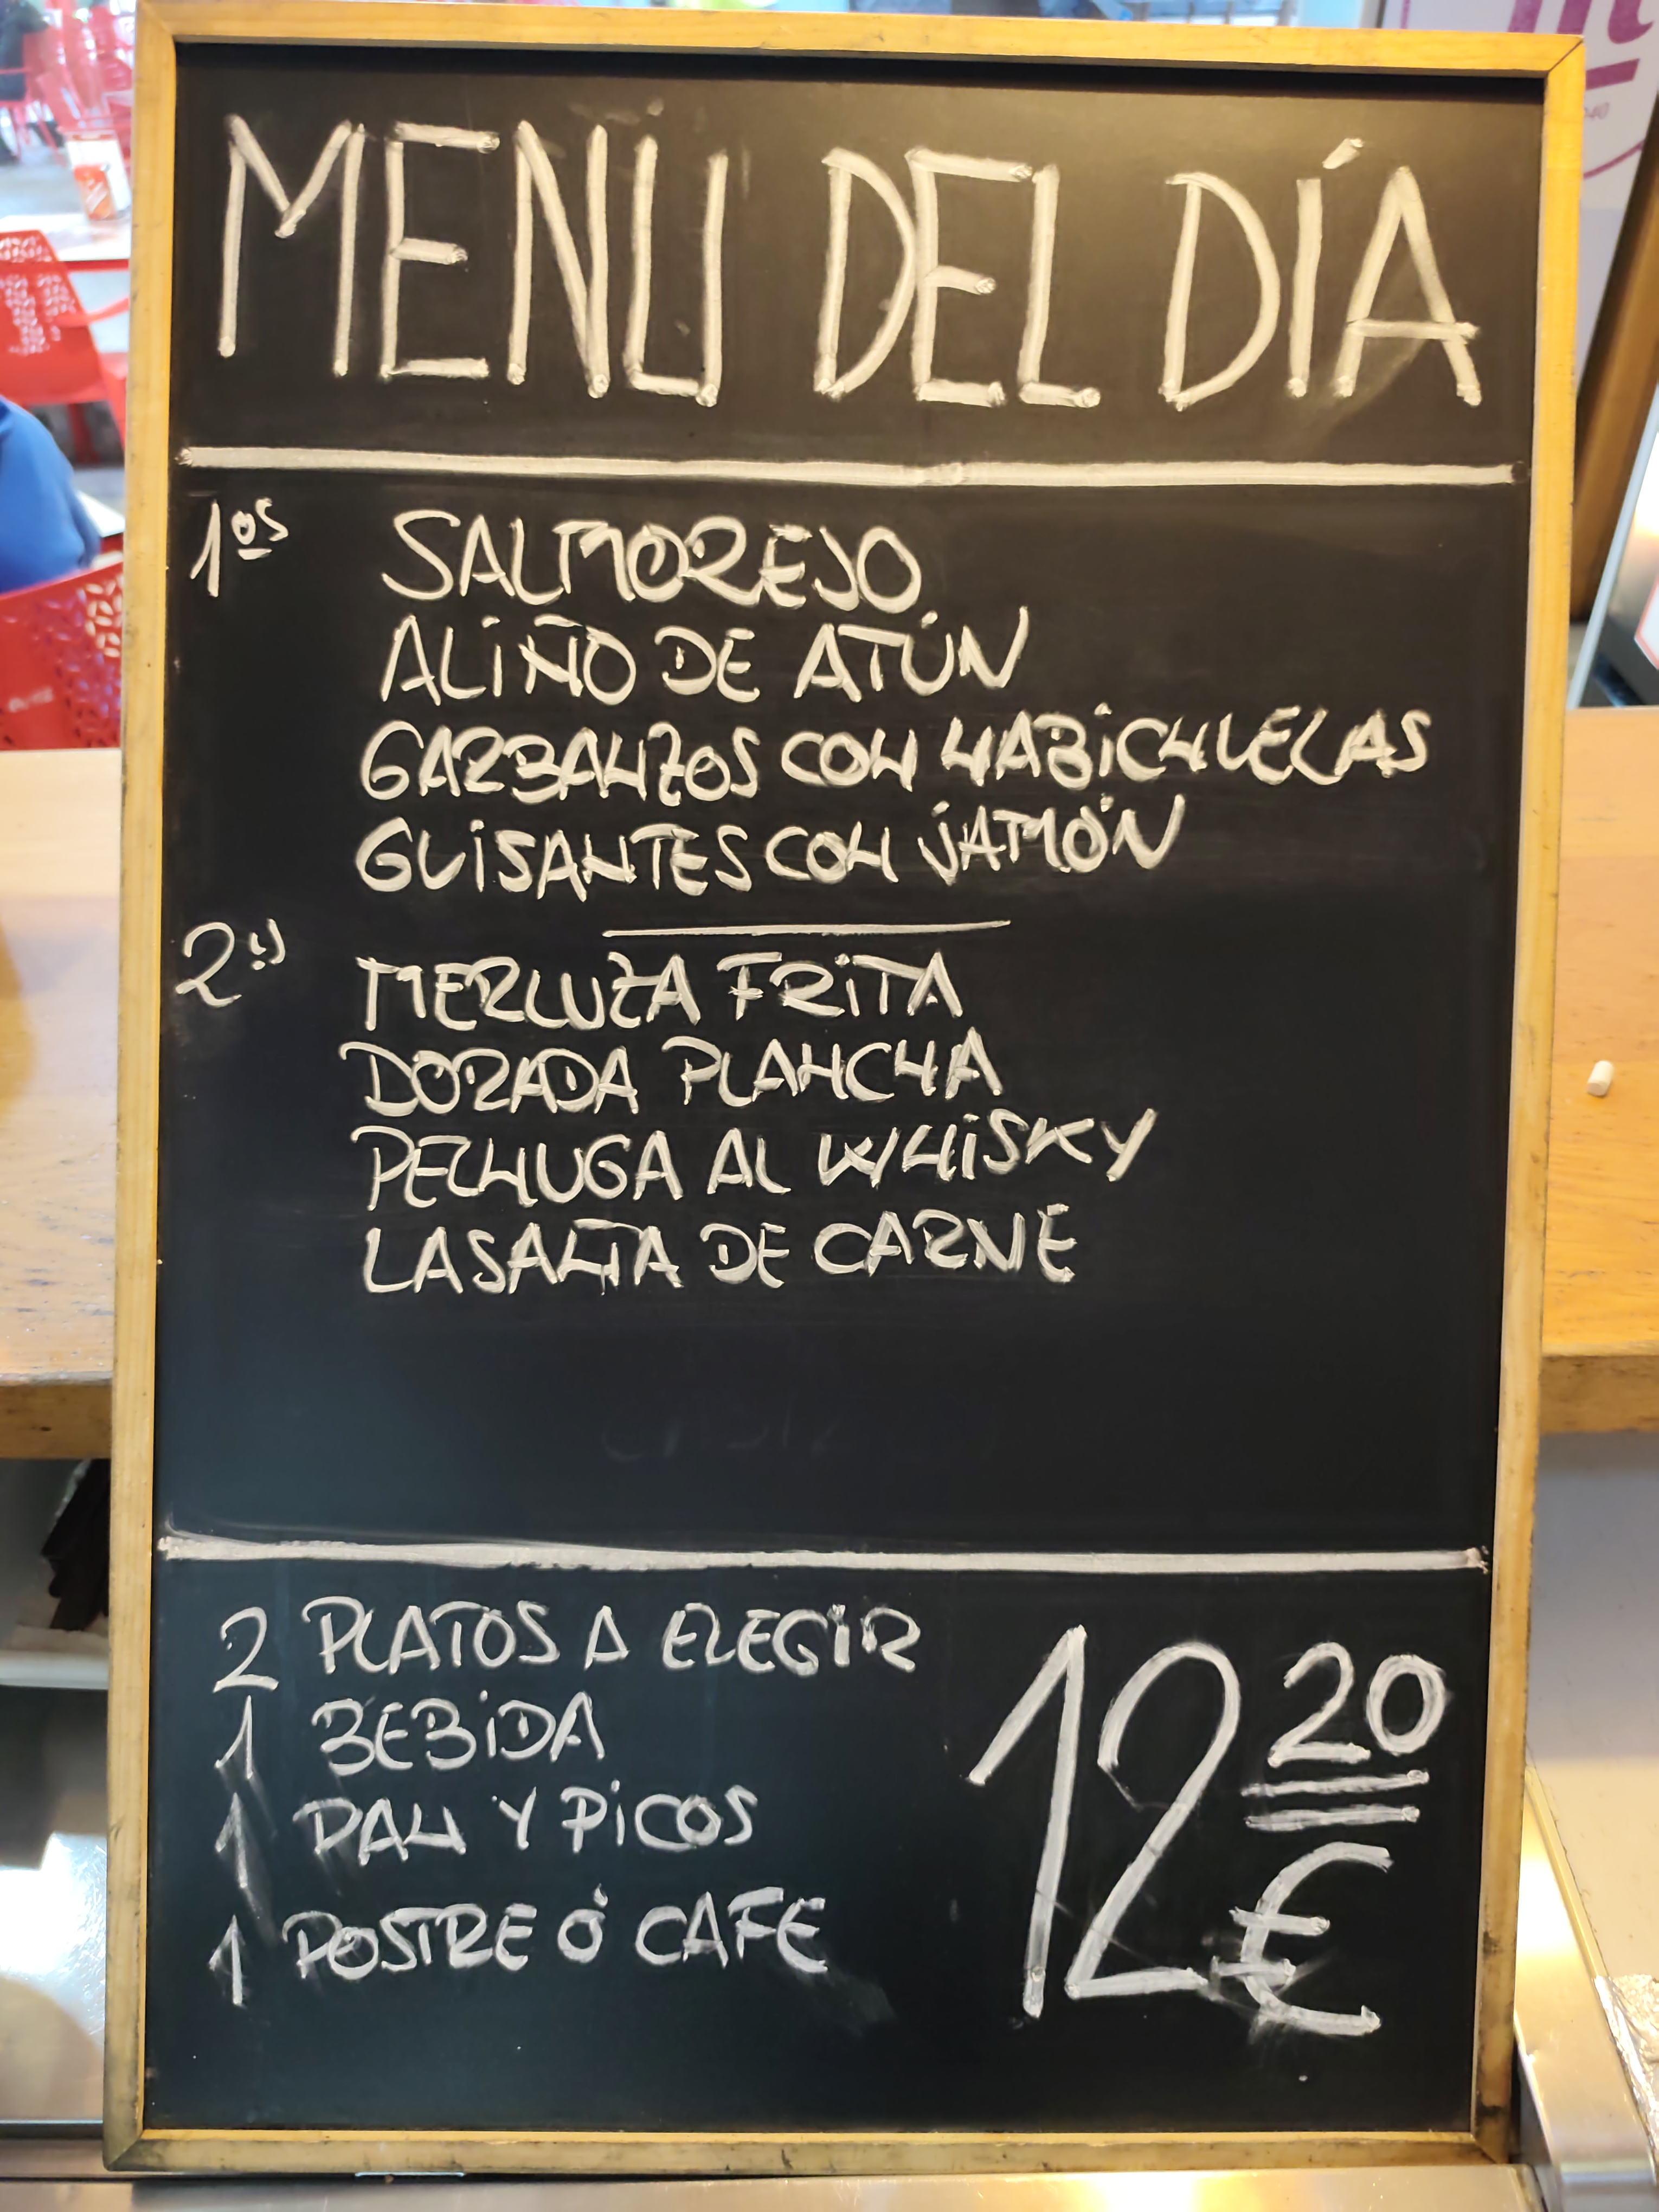 MENÚ DEL DÍA
1ºs SALMOREJO
ALIÑO DE ATÚN
GARBANZOS CON HABICHUELAS
GUISANTES CON JAMÓN
2ºs MERLUZA FRITA
DORADA PLANCHA
PECHUGA AL WHISKY
LASAÑA DE CARNE
2 PLATOS A ELEGIR
1 BEBIDA
1 PAN Y PICOS
1 POSTRE Ó CAFE
12 20 €